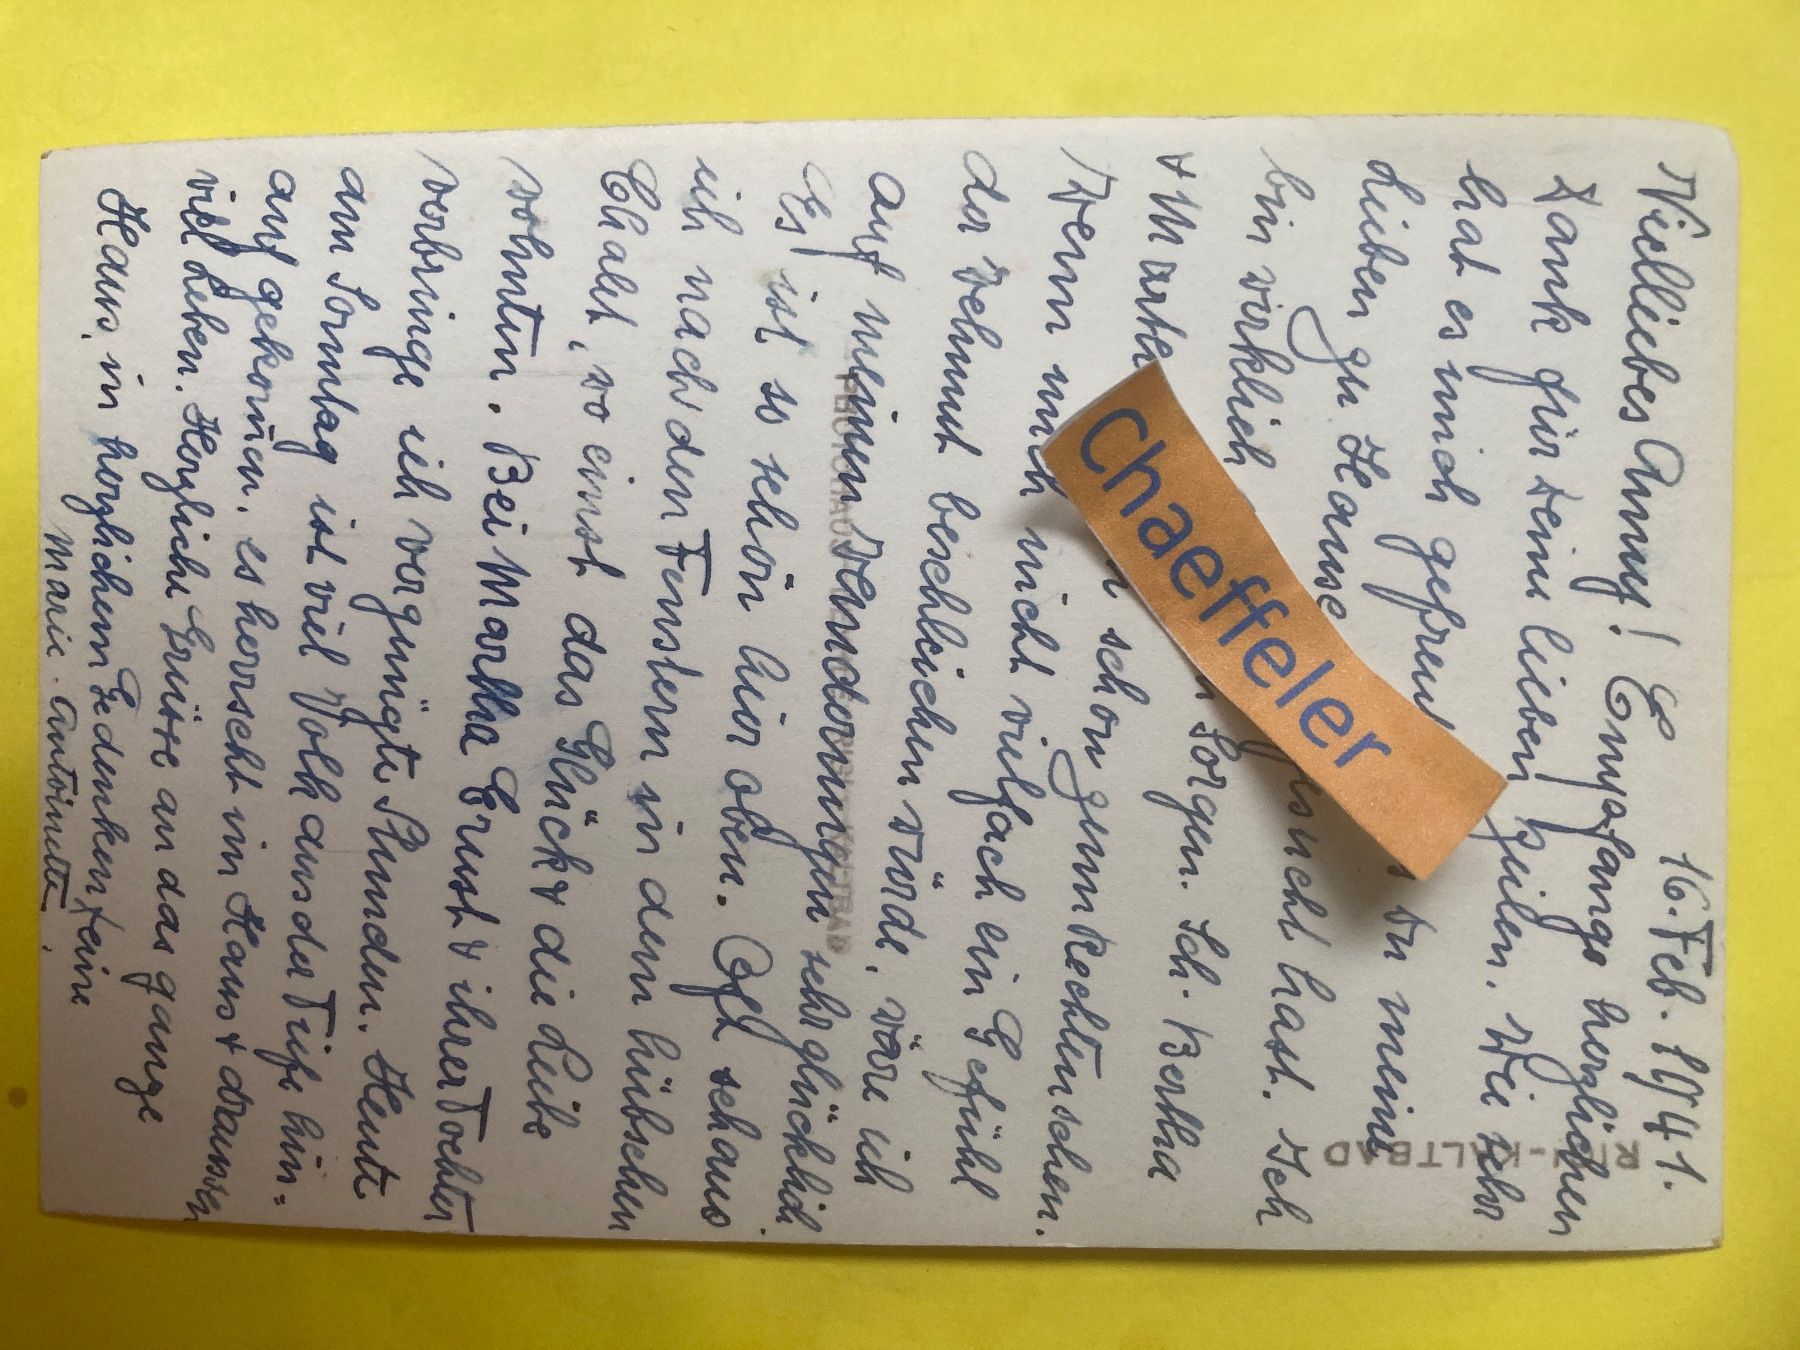 16. Feb. 1941.
Viellliebes Anny! Empfange herzlichen
Dank für deine lieben Zeilen. Wie sehr
hat es mich gefreut Du meine
Lieben zu Hause besucht hast. Ich
bin wirklich in Sorgen. Sch. Bertha
& Martha schon zum Rechten sehen.
Wenn mich nicht vielfach ein Gefühl
der Wehmut beschleichen würde, wäre ich
auf meinen Wanderungen sehr glücklich.
Es ist so schön hier oben. Oft schaue
ich nach den Fenstern in dem hübschen
Chalet, wo einst das Glück & die Liebe
wohnten. Bei Martha Ernst & ihrer Tochter
verbringe ich vergnügte Stunden. Heute
am Sonntag ist viel Volk aus der Tiefe hin=
auf gekomen. es herrscht im Haus & draussen
viel Leben. Herzliche Grüsse an das ganze
Haus, in herzlichem Gedenken Deine
Marie. Antoinette.
RIGI-KALTBAD
PHOTOHAUS RIGI-KALTBAD
Chaeffeler